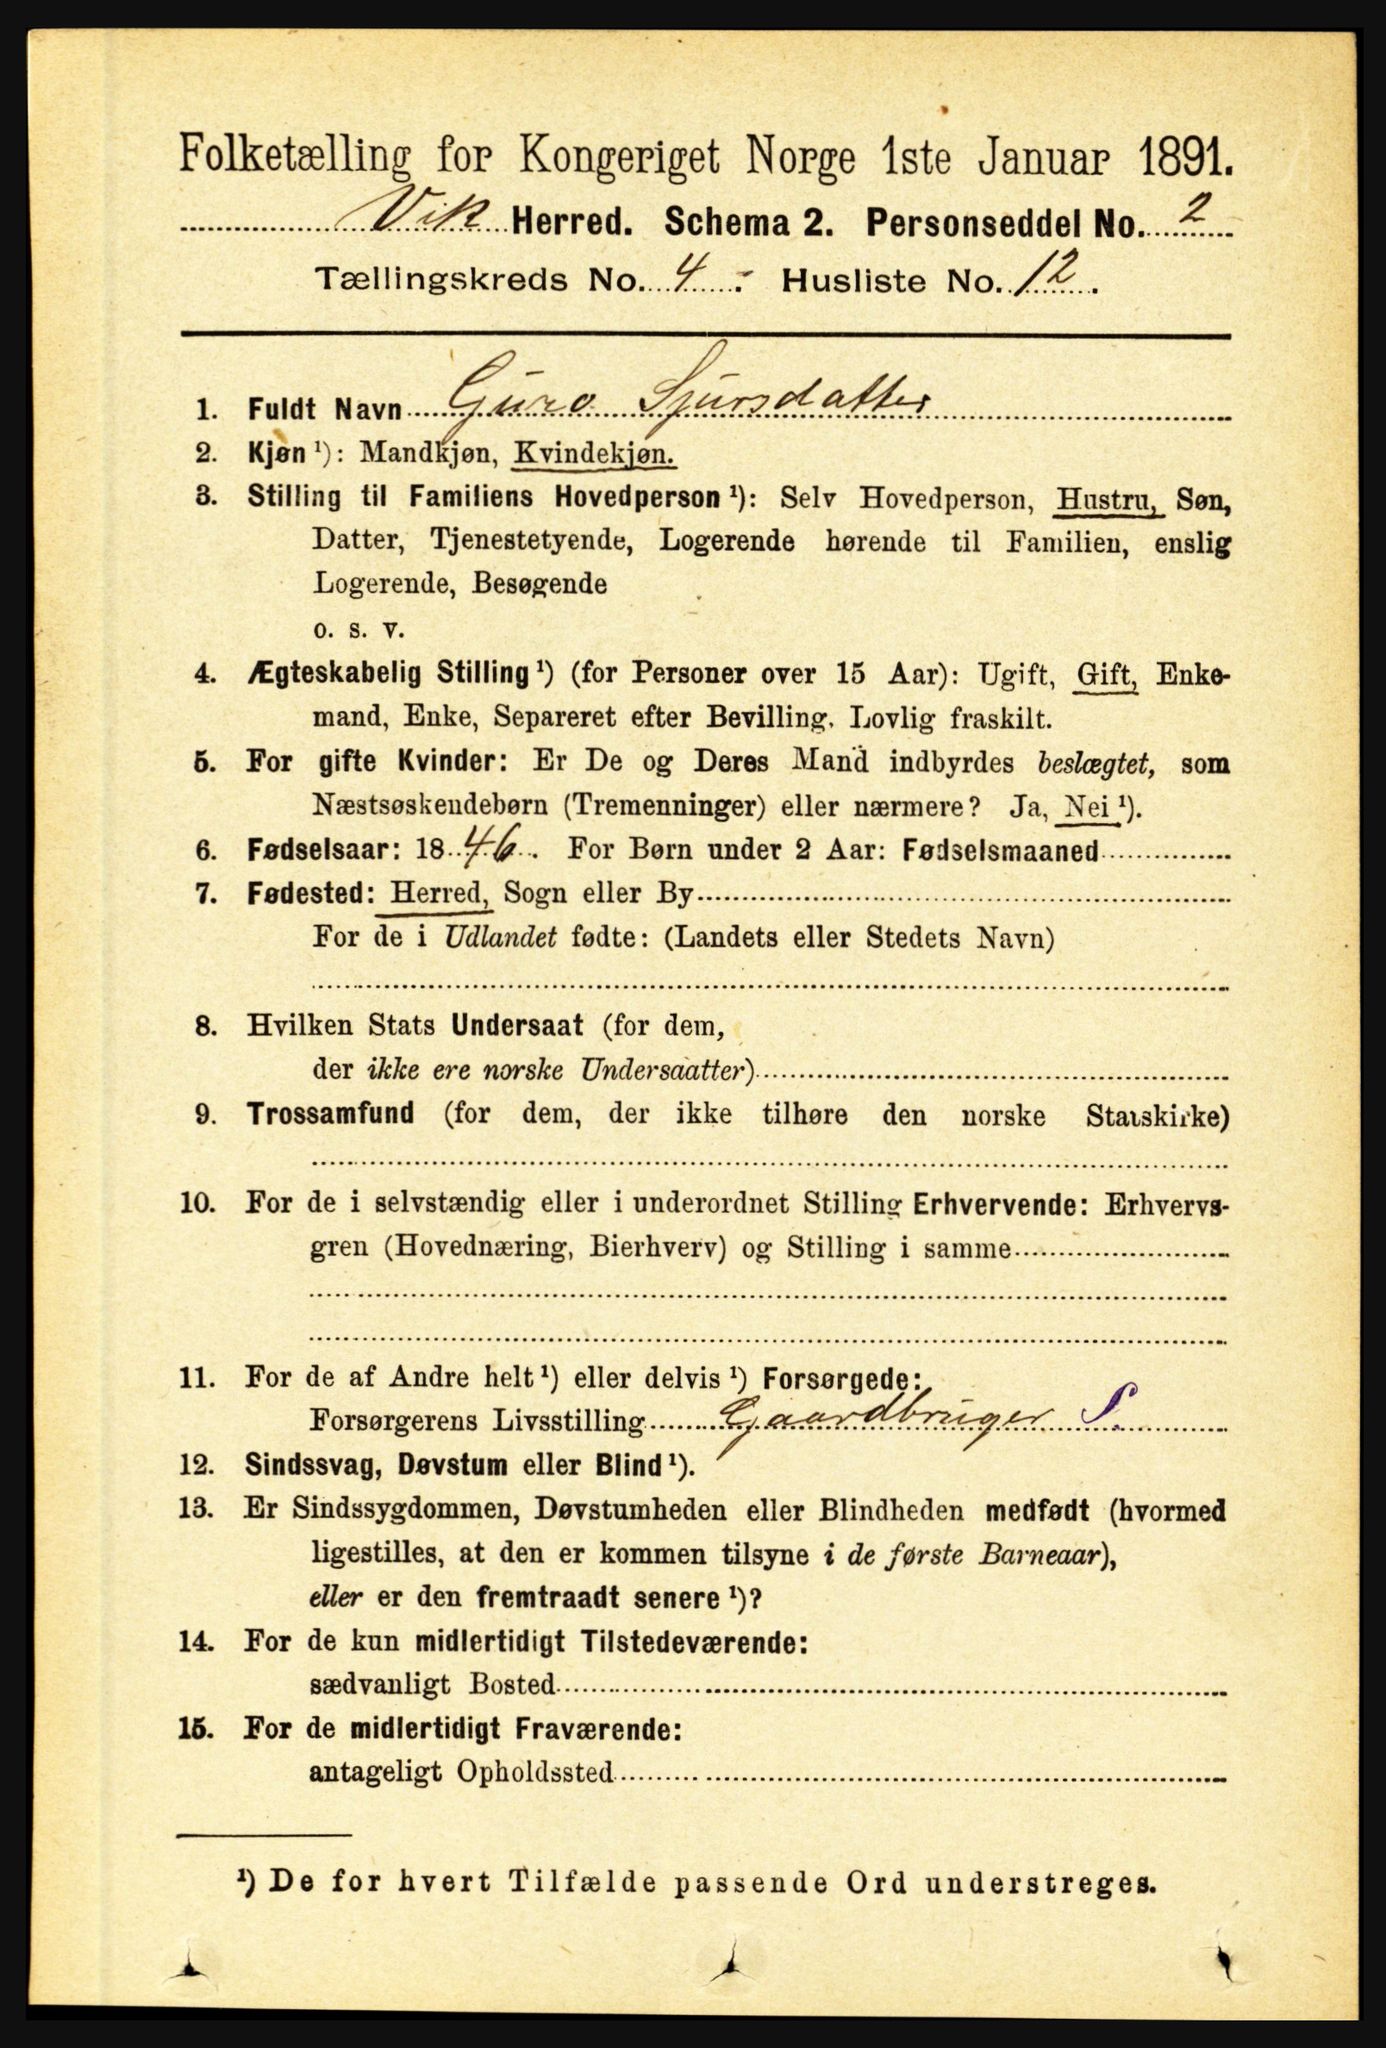 Folketælling for Kongeriget Norge 1ste Januar 1891.
Vik Herred. Schema 2. Personseddel No. 2
Tællingskreds No. 4. Husliste No. 12.
1. Fuldt Navn Guro Sjursdatter
2. Kjøn ¹): Mandkjøn, Kvindekjøn.
3. Stilling til Familiens Hovedperson ¹): Selv Hovedperson, Hustru, Søn,
Datter, Tjenestetyende, Logerende hørende til Familien, enslig
Logerende, Besøgende
o. s. v.
4. Ægteskabelig Stilling ¹) (for Personer over 15 Aar): Ugift, Gift, Enke-
mand, Enke, Separeret efter Bevilling. Lovlig fraskilt.
5. For gifte Kvinder: Er De og Deres Mand indbyrdes beslægtet, som
Næstsøskendebørn (Tremenninger) eller nærmere? Ja, Nei ¹).
6. Fødselsaar: 1846. For Børn under 2 Aar: Fødselsmaaned
7. Fødested: Herred, Sogn eller By
For de i Udlandet fødte: (Landets eller Stedets Navn)
8. Hvilken Stats Undersaat (for dem,
der ikke ere norske Undersaatter)
9. Trossamfund (for dem, der ikke tilhøre den norske Statskirke)
10. For de i selvstændig eller i underordnet Stilling Erhvervende: Erhvervs-
gren (Hovednæring, Bierhverv) og Stilling i samme
11. For de af Andre helt ¹) eller delvis ¹) Forsørgede:
Forsørgerens Livsstilling Gaardbruger S.
12. Sindssvag, Døvstum eller Blind ¹).
13. Er Sindssygdommen, Døvstumheden eller Blindheden medfødt (hvormed
ligestilles, at den er kommen tilsyne i de første Barneaar),
eller er den fremtraadt senere ¹)?
14. For de kun midlertidigt Tilstedeværende:
sædvanligt Bosted
15. For de midlertidigt Fraværende:
antageligt Opholdssted
¹) De for hvert Tilfælde passende Ord understreges.